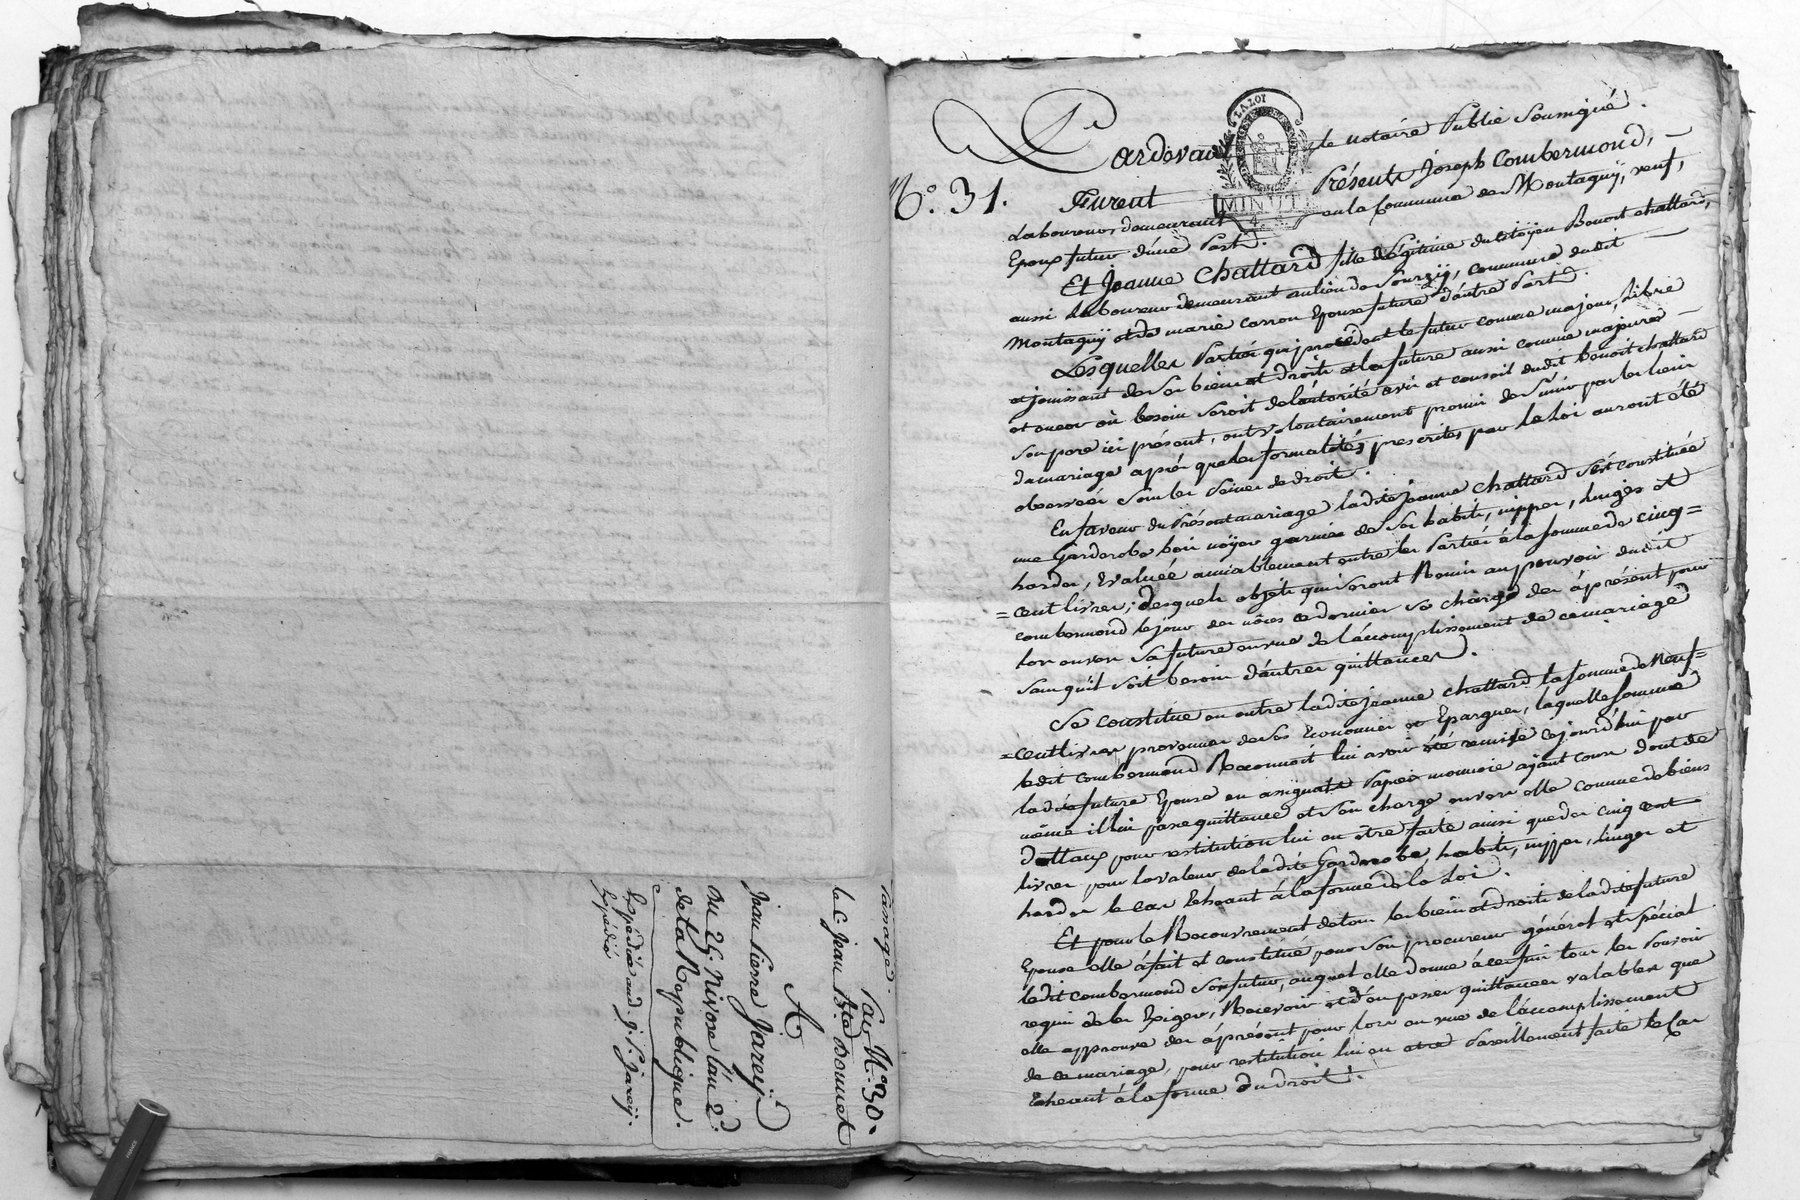 Quittance
Par N.° 30.
le C. Jean B.te Bonnet
A
Jean Pierre Jarey
Du 25. Nivose l'an 2.d
de la Republique.
Expédiée aud. J. P. Jarey.
Expédié
N.° 31.
LA LOI
MINUTE
Pardevant le notaire Public Soussigné.
Furent Présents Joseph Combermond,
Laboureur demeurant en la Commune de Montaguÿ, veuf,
Epoux futur d'une Part.
Et Jeanne Chattard fille Légitime du Citoÿen Benoit chattard,
aussi Laboureur demeurant au lieu de Sourzÿ, commune dudit
Montaguÿ et de marie carron Epouse future d'autre Part.
Lesquelles Parties qui procédent le futur comme majeur, Libre
et jouissant de ses biens et droits et la future aussi comme majeure
et encor où besoin seroit de l'autorité avis et conseil dudit benoit chattard
son pere ici présent, ont volontairement promis de s'unir par les liens
du mariage après que les formalités prescrites par la Loi auront été
observées sous les Peines de droit.
En faveur du Présent mariage ladite jeanne Chattard s'est constituée
une Garderobe bois noÿer garnie de ses habits, nippes, linges et
hardes, Evaluée amiablement entre les Parties à la somme de cinq=
=cent livres, desquels objets qui seront Remis au pouvoir dudit
combermond le jour des nôces ce dernier se charge dès àprésent pour
lors envers sa future en vue de l'accomplissement de ce mariage
sans qu'il soit besoin d'autres quittances.
Se constitue en outre ladite jeanne chattard la somme de Neuf=
=cent livres provenues de ses Economies et Epargnes, laquelle somme
ledit combermond Reconnoit lui avoir été remise cejourd'hui par
ladite future Epouse en assignats Papier monnoie aÿant cours dont de
même il lui passe quittance et s'en charge envers elle comme de biens
dottaux pour restitution lui en être faite ainsi que des cinq cent
livres pour la valeur de ladite Garderobe, habits, nippes, linges et
hardes le cas Echeant à la forme de la Loi.
Et pour le Recouvrement de tous les biens et droits de ladite future
Epouse elle à fait et constitué pour son procureur général et spécial
ledit combermond son futur, auquel elle donne à ces fins tous les Pouvoirs
requis de les Exiger, Recevoir et d'en passer quittances valables que
elle approuve dès àprésent pour lors en vue de l'accomplissement
de ce mariage, pour restitution lui en etre Pareillement faite le Cas
Echeant à la forme du droit.